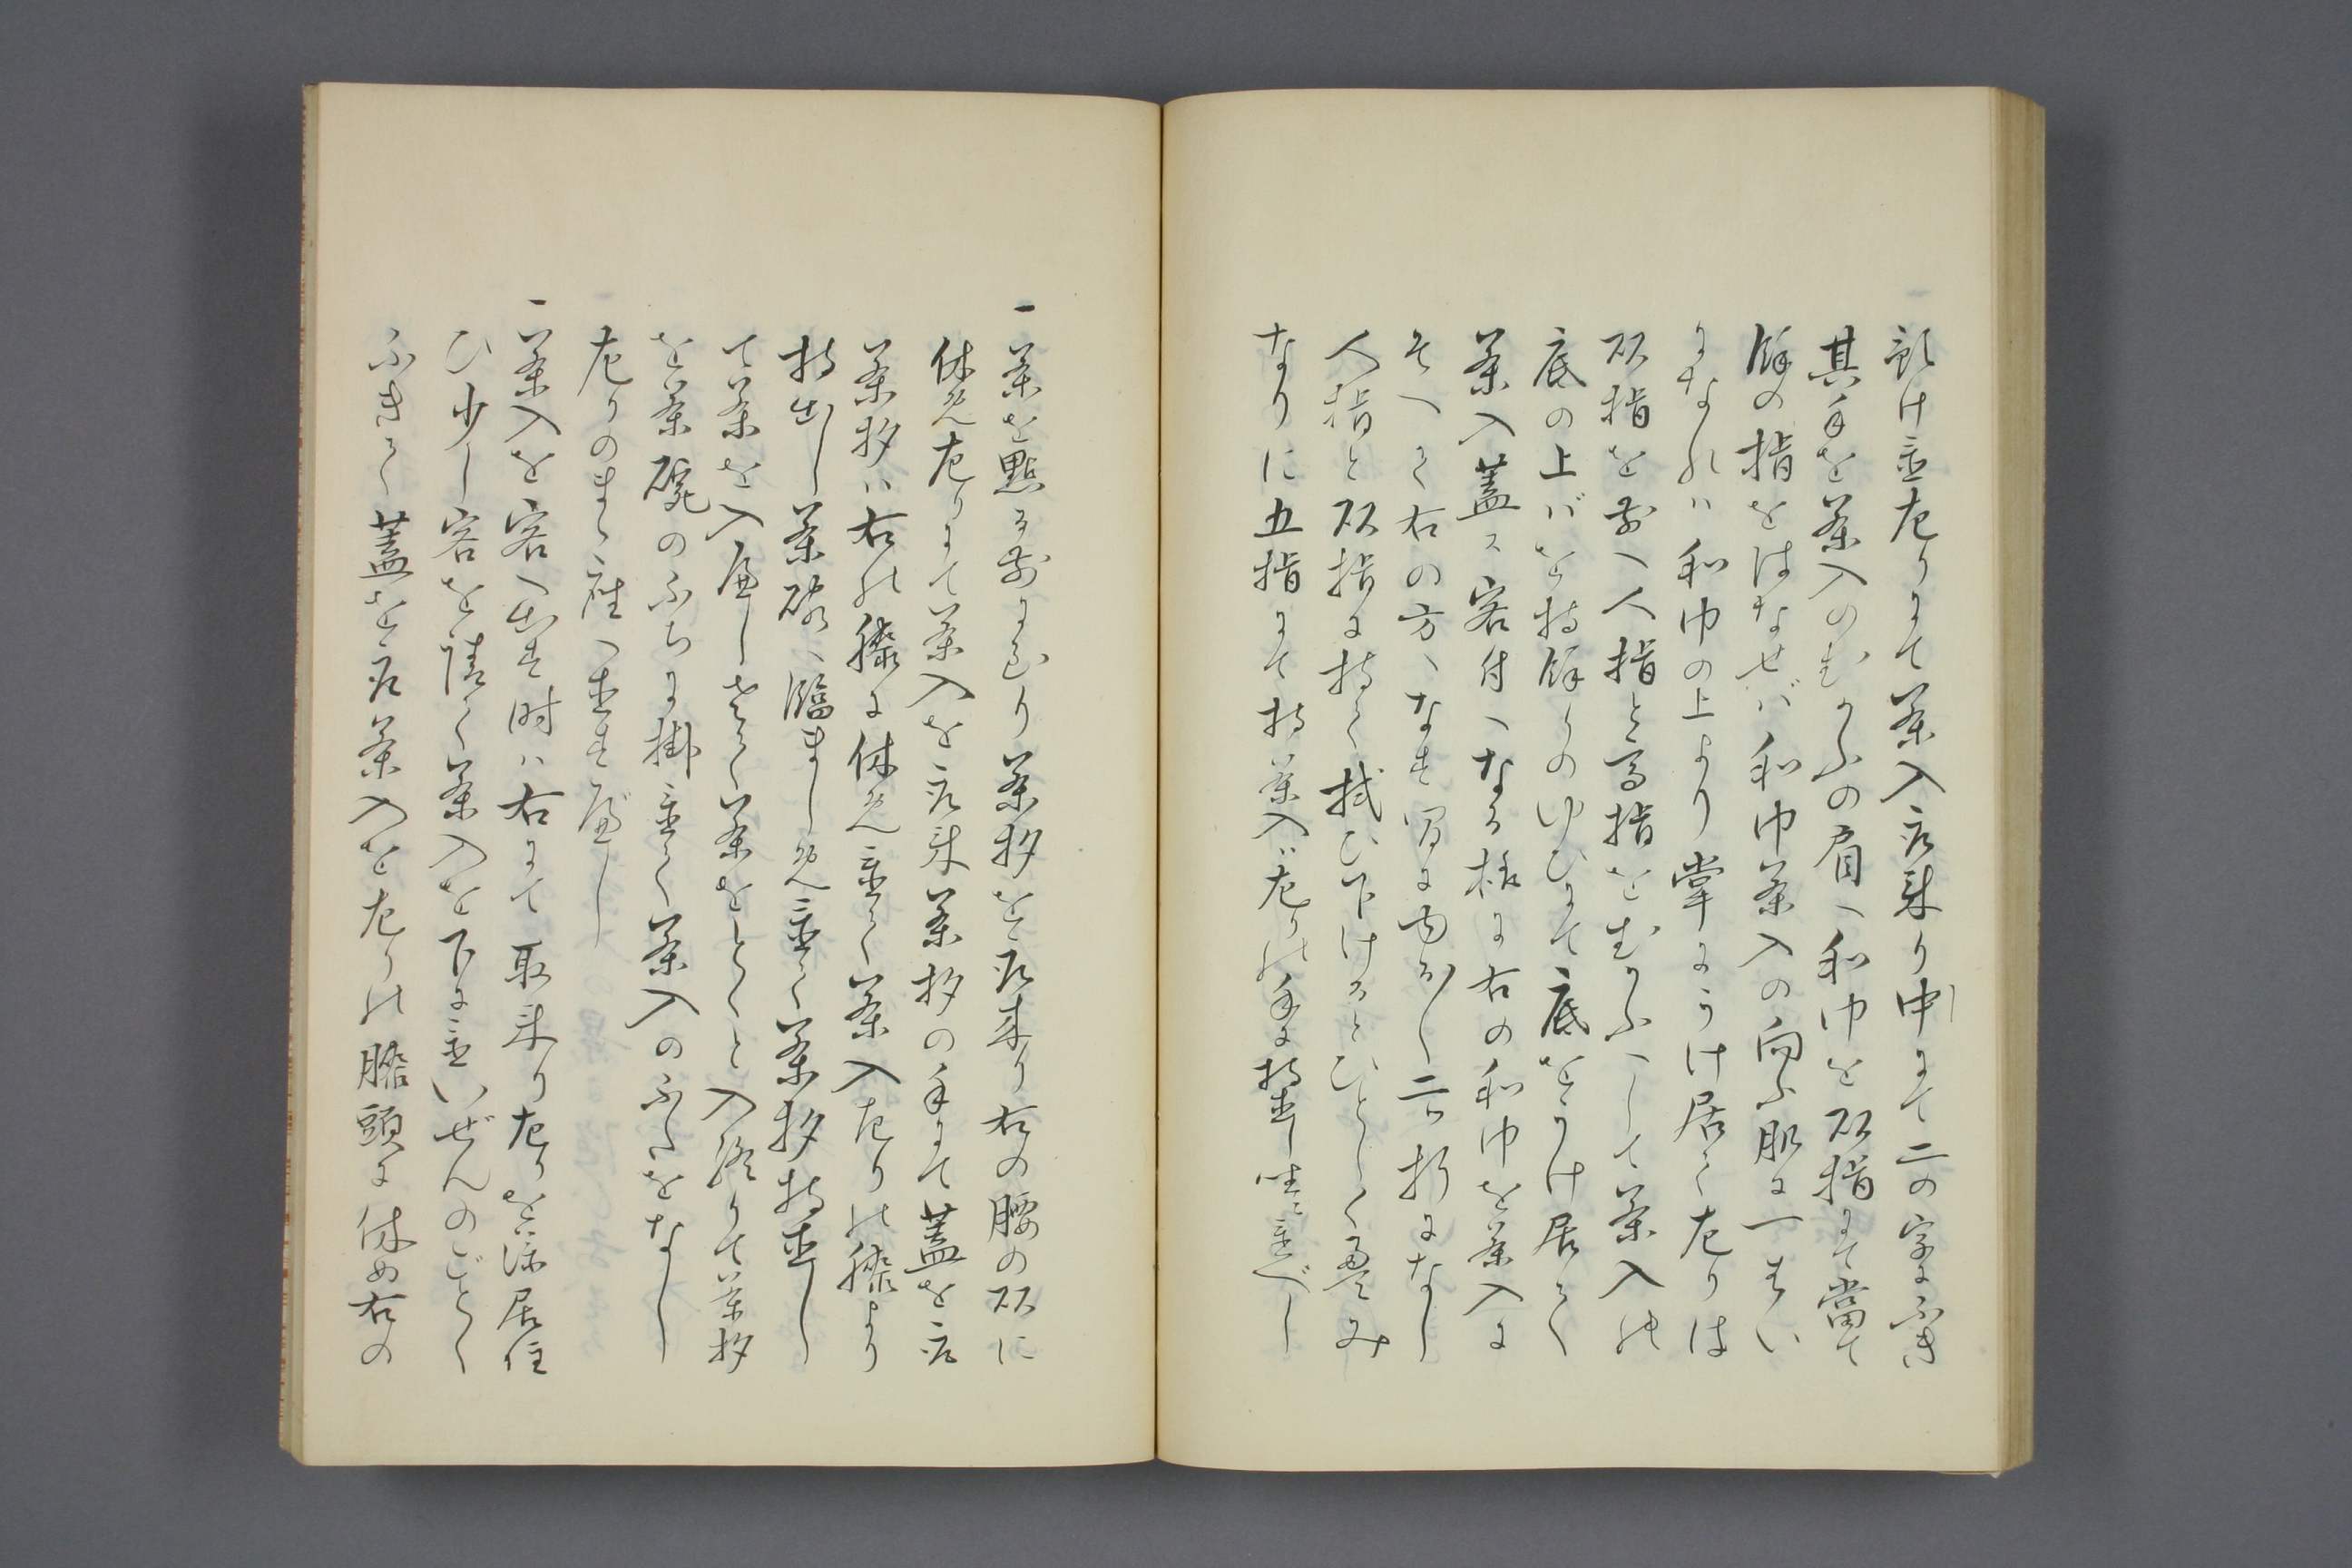 預け置左りにて茶入取来り中にて二の字にふき
其手を茶入のむかふの肩へ和巾を頭指にて當て
餘の指をはなせバ和巾茶入の向ふ肌に一ぱい
になれハ和巾の上より掌にうけ居て左りは
頭指を前へ人指と高指をむかふへして茶入の
底の上バを持餘りのゆびにて底をうけ居て
茶入蓋ハ客付へなる様に右の和巾を茶入に
そへて右の方へなす间に内ふして二ッ折になし
人指と頭指に持て拭ひ下けるとひとしく畳み
なりに五指にて持茶入ハ左りの手に持出し置べし
一茶を點る前にわり茶杓を取来り右の腰の頭に
休め左りにて茶入を取来茶杓の手にて蓋を取
茶杓ハ右の膝に休め置て茶入左りの膝より
持出し茶碗へ臨ましめ置て茶杓持出し
て茶を入廉しさて茶をとくと入終りて茶杓
を茶碗のふちに掛置て茶入のふたをなし
左りのまゝ座へ直すべし
一茶入を客へ出す時ハ右にて取来り左りを添居住
ひ少し客を請て茶入を下に置いぜんのごとく
ふきて蓋を取茶入を左りの膝頭に休め右の